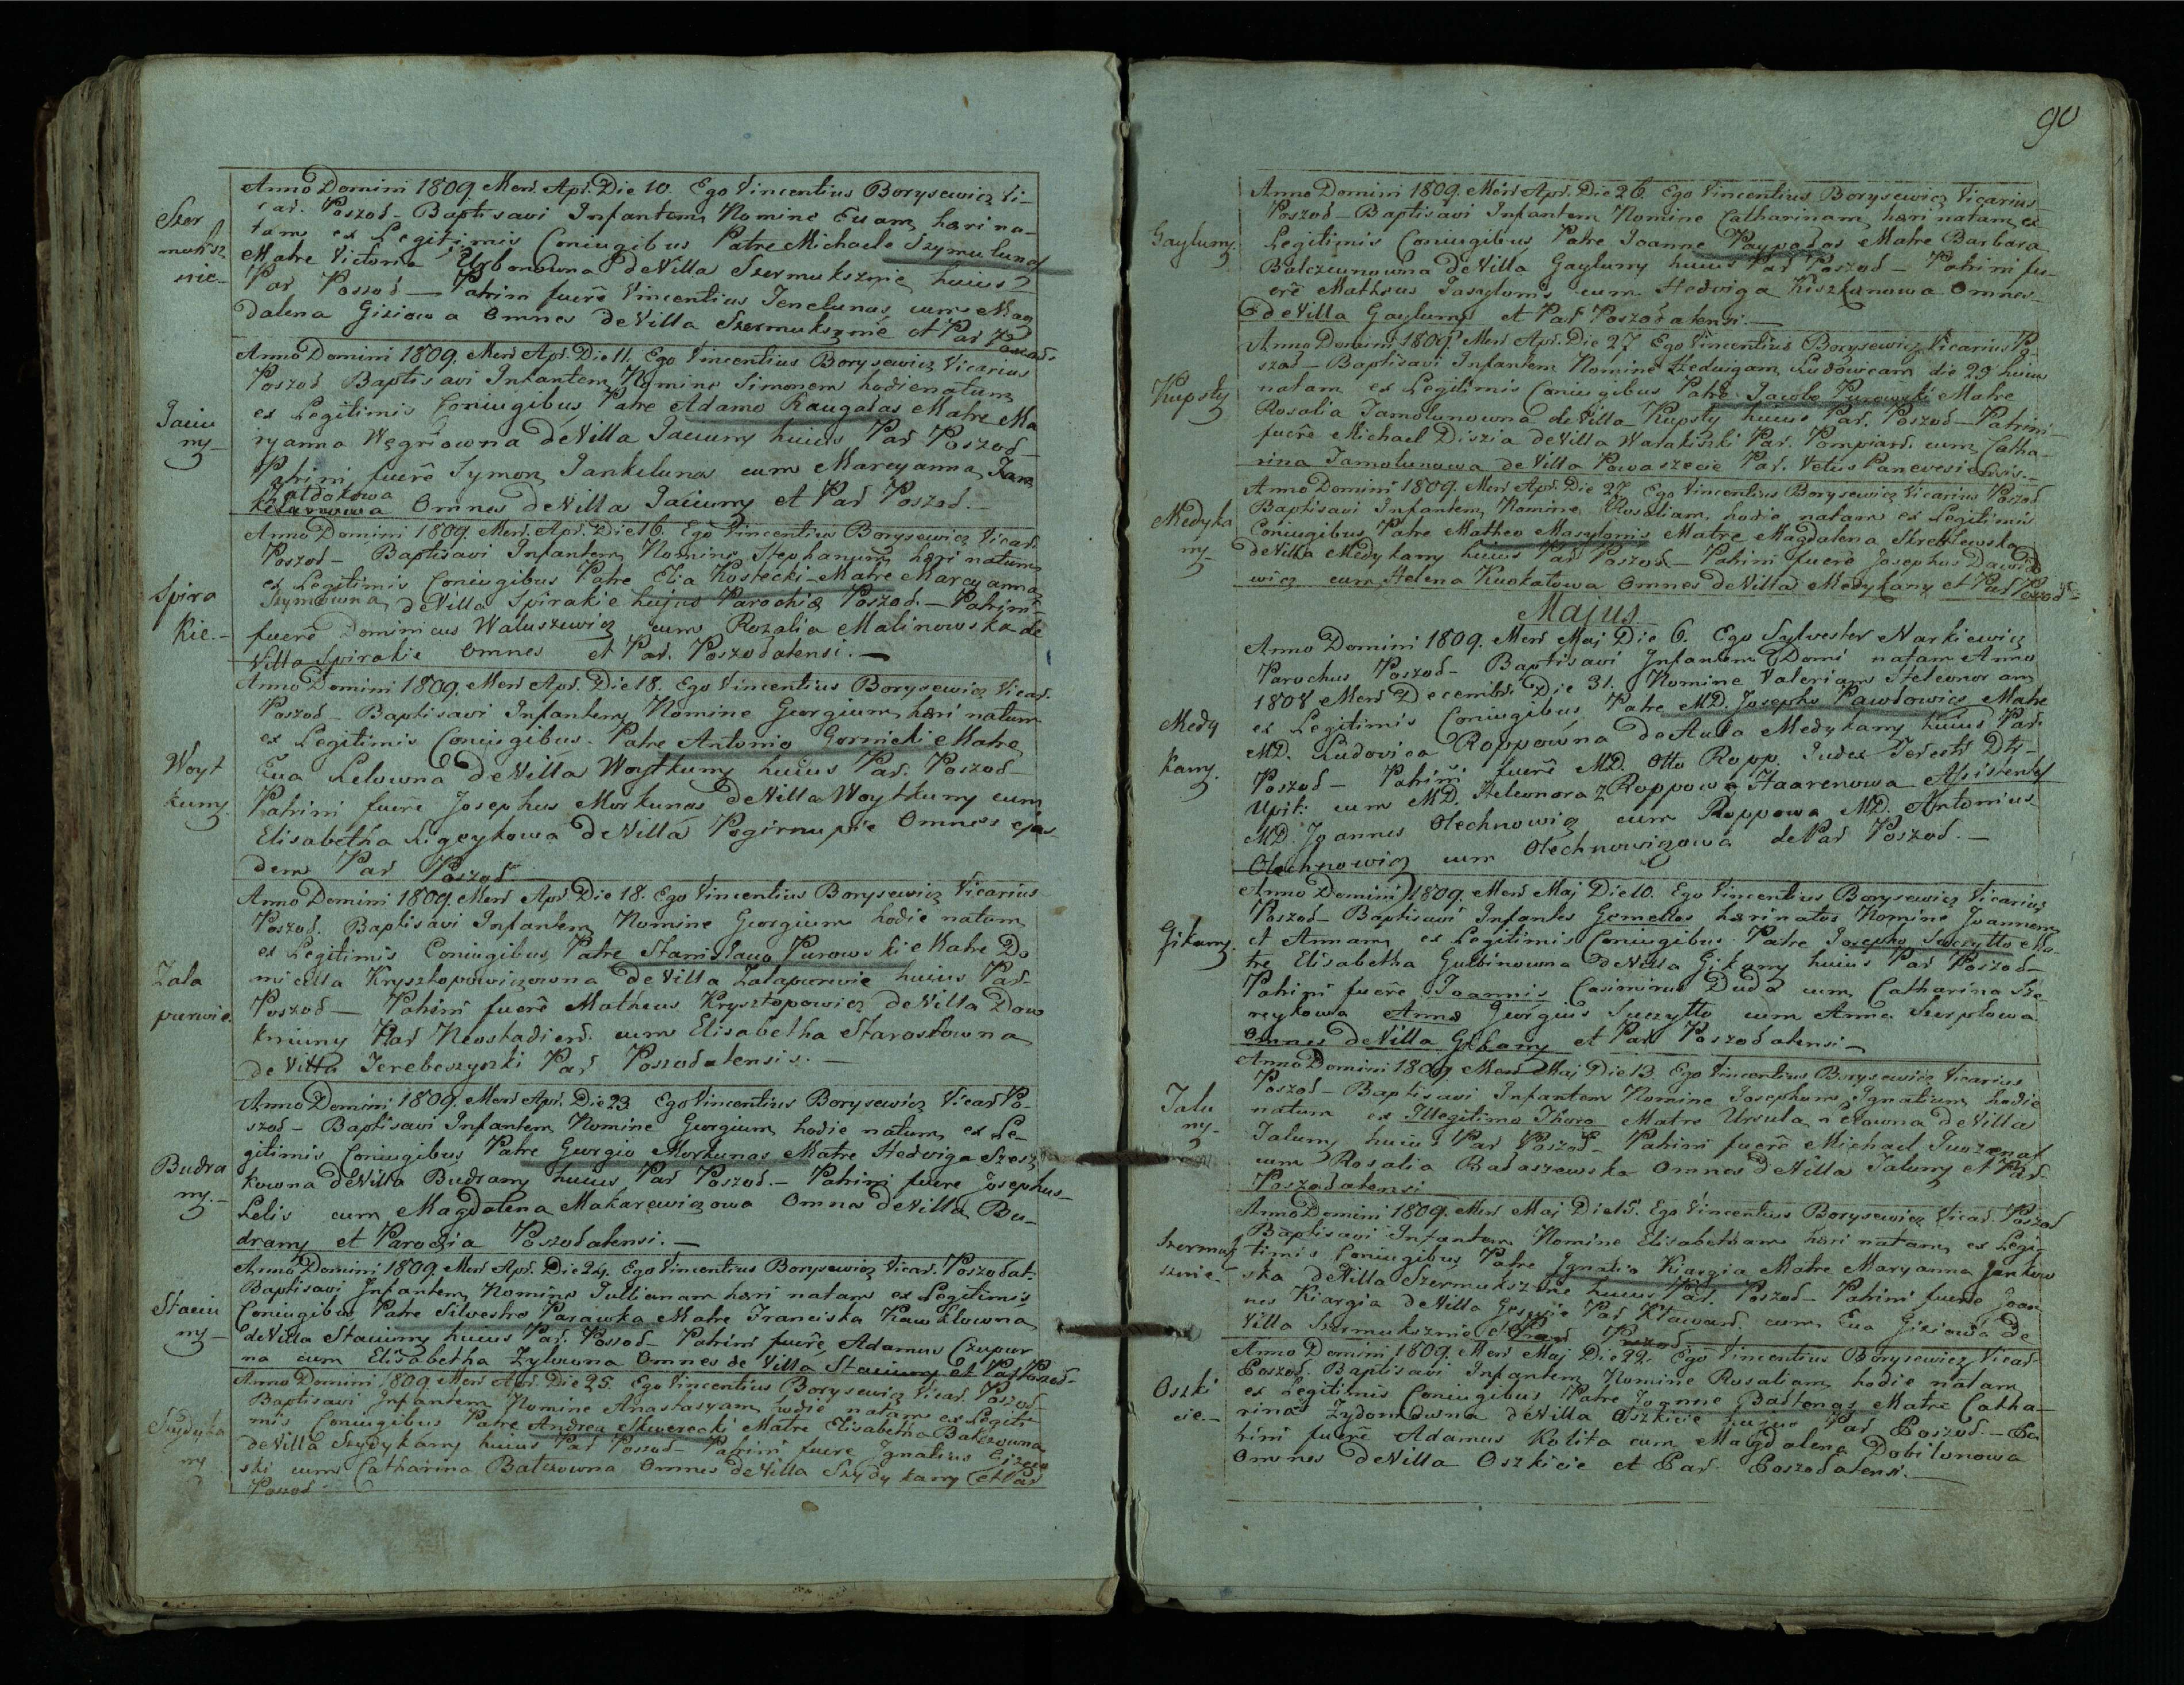 Szer
muksz
nie_
Anno Domini 1809 Mens. Apr. Die 10. Ego Vincentius Borysewicz Vi-
car. Poszod_ Baptisavi Infantem Nomine Euam, heri na-
tam ex Legitimis Coniugibus Patre Michaele Szymuluna
Matre Victoria Urbonowna de Villa Szermuksznie huius
Par Poszod_ Patrini fuerē Vincentius Jenelunas cum Mag
dalena Giziowa Omnes de Villa Szermuksznie et Par Poszod.
Jaciu
ny_
Anno Domini 1809. Mens Apr. Die 11. Ego Vincentius Borysewicz Vicarius
Poszod Baptisavi Infantem Nomine Simonem hodie natum
ex Legitimis Coniugibus Patre Adamo Raugalas Matre Ma
ryanna Węgrowna de Villa Jaciuny huius Par Poszod_
Patrini fuerē Symon Jankelunas cum Maryanna Jan
Omnes de Villa Jaciuny et Par Poszod._
Spira
kie._
Anno Domini 1809. Mens. Apr. Die 16. Ego Vincentius Borysewicz Vicar.
Poszod_ Baptisavi Infantem Nomine Stephanum heri natum
ex Legitimis Coniugibus Patre Elia Kostecki_ Matre Maryanna
Szymowna de Villa Spirakie hujus Parochiæ Poszod._ Patrini
fuerē Dominicus Waluszewicz cum Rozalia Malinowska de
Villa Spirakie Omnes et Par. Poszodalensi._
Woyt
kuny
Anno Domini 1809. Mens Apr. Die 18. Ego Vincentius Borysewicz Vicar.
Poszod_ Baptisavi Infantem Nomine Georgium heri natum
ex Legitimis Coniugibus. Patre Antonio Gornicki Matre
Eua Lelowna de Villa Woytkuny huius Par. Poszod_
Patrini fuerē Josephus Morkunas de Villa Woytkuny cum
Elisabetha Ligeykowa de Villa Pogirnupie Omnes ejus
dem Par Poszod_
Zala
purwie.
Anno Domini 1809. Mens Apr Die 18. Ego Vincentius Borysewicz Vicarius
Poszod. Baptisavi Infantem Nomine Georgium hodie natum
ex Legitimis Coniugibus Patre Stanislawo Purowski Matre Do
micella Krysztopowiczowna de Villa Zalapurwie huius Par
Poszod_ Patrini fuerē Matheus Krysztopowicz de Villa Dow
kniuny Par Neostadiens. cum Elisabetha Starostowna
de Villa Terebeszyszki Par Poszodalensis._
Budra
ny._
Anno Domini 1809. Mens Apr. Die 23 Ego Vincentius Borysewicz Vicar Po-
szod_ Baptisavi Infantem Nomine Georgium hodie natum ex Le-
gitimis Coniugibus Patre Gurgio Morkunas Matre Hedviga Szesz
kowna de Villa Budrany huius Par Poszod._ Patrini fuere Josephus
Lelis cum Magdalena Makarewiczowa Omnes de Villa Bu-
drany et Parochia Poszodalensi._
Staciu
ny_
Anno Domini 1809. Mens Apr. Die 24. Ego Vincentius Borysewicz Vicar. Poszodal:
Baptisavi Infantem Nomine Jullianam heri natam ex Legitimis
Coniugibus Patre Silvestro Parawka Matre Franciska Kawklowna
de Villa Staciuny huius Par. Poszod_ Patrini fuerē Adamus Czupur
na cum Elisabetha Zylowna Omnes de Villa Staciuny et Par Poszod_
Szydyka
ny
Anno Domini 1809. Mens Apr. Die 25. Ego Vincentius Borysewicz Vicar. Poszod_
Baptisavi Infantem Nomine Anastasyam hodie natam ex Legiti
mis Coniugibus Patre Andrea Skwerecki Matre Elisabetha Balczowna
de Villa Szydykany huius Par Poszod_ Patrini fuere Ignatius
ski cum Catharina Balczowna Omnes de Villa Szydykany et Par
Poszod_
90
Gayluny.
Anno Domini 1809. Mens Apr. Die 26. Ego Vincentius Borysewicz Vicarius
Poszod_ Baptisavi Infantem Nomine Catharinam heri natam ex
Legitimis Coniugibus Patre Joanne Paypalas Matre Barbara
Balczeunowna de Villa Gayluny huius Par Poszod_ Patrini fu-
erē Matheus Jasaylonis cum Hedviga Kiszkunowa Omnes
de Villa Gayluny et Par Poszodalensi._
Kupsty
Anno Domini 1809 Mens Apr. Die 27 Ego Vincentius Borysewicz Vicarius Po
szod_ Baptisavi Infantem Nomine Hedvigam Ludowicam die 29 huius
natam ex Legitimis Coniugibus Patre Jacobo Purowski Matre
Rosalia Jamolunowna de Villa Kupsty huius Par. Poszod_ Patrini
fuerē Michael Diszia de Villa Walakiszki Par. Pompians. cum Catha-
rina Jamolunowa de Villa Powaszecie Par. Vetus Panevesiensis._
Medyka
ny_
Anno Domini 1809. Mens Apr. Die 27. Ego Vincentius Borysewicz Vicarius Poszod
Baptisavi Infantem Nomine Rosaliam. hodie natam ex Legitimis
Coniugibus Patre Matheo Masylonis Matre Magdalena Strelczewska
de Villa Medykany huius Par Poszod_ Patrini fuerē Josephus Dawid
wicz cum Helena Kuokalowa Omnes de Villa Medykany et Par Poszod_
Majus.
Medy
kany.
Anno Domini 1809. Mens Maj Die 6. Ego Sylvester Narkiewicz
Parochus Poszod_ Baptisavi Infantem Domi natam Anno
1808 Mens Decembr. Die 31. Nomine Valeriam Heleonoram
ex Legitimis Coniugibus Patre MD. Josepho Pawlowicz Matre
MD. Ludovica Roppowna de Aula Medykany huius Par.
Poszod_ Patrini fuerē MD. Otto Ropp. Judex Terestr Dtj_
Upit. cum MD. Heleonora z Roppow Haarenowa Assistentes
MD. Joannes Olechnowicz cum Roppowa MD. Antonius
Olechnowicz cum Olechnowiczowa de Par Poszod._
Gikany.
Anno Domini 1809. Mens Maj Die 10. Ego Vincentius Borysewicz Vicarius
Poszod_ Baptisavi Infantes Gemellos heri natos Nomine Joannem
et Annam ex Legitimis Coniugibus. Patre Josepho Suczyllo Ma-
tre Elisabetha Gulbinowna de Villa Gikany huius Par Poszod_
Patrini fuerē Joannis Casimirus Duda cum Catharina Sze-
reykowa Anna Georgius Suczyllo cum Anna Szerplowa
Omnes de Villa Gikany et Par Poszodalensi_
Jalu
ny_
Anno Domini 1809 Mens Maj Die 13. Ego Vincentius Borysewicz Vicarius
Poszod_ Baptisavi Infantem Nomine Josephum Ignatium hodie
natum ex Illegitimo Thoro Matre Ursula de Villa
Jaluny huius Par Poszod_ Patrini fuerē Michael
cum Rosalia Balaszewska Omnes de Villa Jaluny et Par
Poszodalensi
Szermuk
sznie_
Anno Domini 1809. Mens Maj Die 15. Ego Vincentius Borysewicz Vicar. Poszod
Baptisavi Infantem Nomine Elisabetham heri natam ex Legi-
timis Coniugibus Patre Ignatio Kiargia Matre Maryanna Jankow
ska de Villa Szermuksznie huius Par. Poszod_ Patrini fuerē Joan
nes Kiargia de Villa Par Klawan. cum Eua Giziowa de
Villa Szermuksznie et Par Poszod
Oszki
cie._
Anno Domini 1809. Mens Maj Die 22. Ego Vincentius Borysewicz Vicar
Poszod. Baptisavi Infantem Nomine Rosaliam hodie natam
ex Legitimis Coniugibus Patre Joanne Baltenas Matre Catha-
rina Zydonowna de Villa Oszkicie hujus Par Poszod._ Pa
trini fuerē Adamus Kolita cum Magdalena Dobilunowa
Omnes de Villa Oszkicie et Par. Poszodalensi._